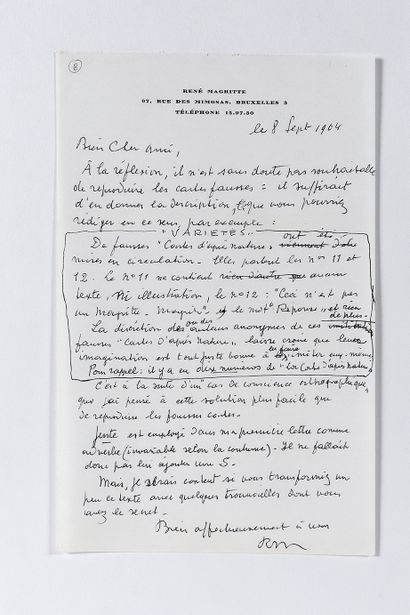 8
RENÉ MAGRITTE
97, RUE DES MIMOSAS, BRUXELLES 3
TÉLÉPHONE 15.97.30
le 8 Sept 1964
Bien Cher Ami,
À la réflexion, il n'est sans doute pas souhaitable
de reproduire les cartes fausses : il suffirait
d'en donner la description, que vous pourriez
rédiger en ce sens, par exemple :
"VARIÉTÉS"
De fausses "Cartes d'après nature" ont été
mises en circulation. Elles portent les nos 11 et
12. Le n° 11 ne contient aucun
texte, ni illustration, le n° 12 : "Ceci n'est pas
un Magritte. Magritte" et le mot "Réponse", et rien de plus.
La discrétion du ou des auteurs anonymes de ces
fausses "Cartes d'Après Nature", laisse croire que leur
imagination est tout juste bonne à en faire imiter eux-même
Pour rappel : il y a eu deux numéros de "La Carte d'après Nature"
C'est à la suite d'un "cas de conscience orthographique",
que j'ai pensé à cette solution plus facile que
de reproduire les fausses cartes.
Juste est employé dans ma première lettre comme
adverbe (invariable selon la coutume). Il ne fallait
donc pas lui ajouter un S.
Mais, je serais content si vous transformiez un
peu ce texte avec quelques trouvailles dont vous
avez le secret.
Bien affectueusement à vous
RM